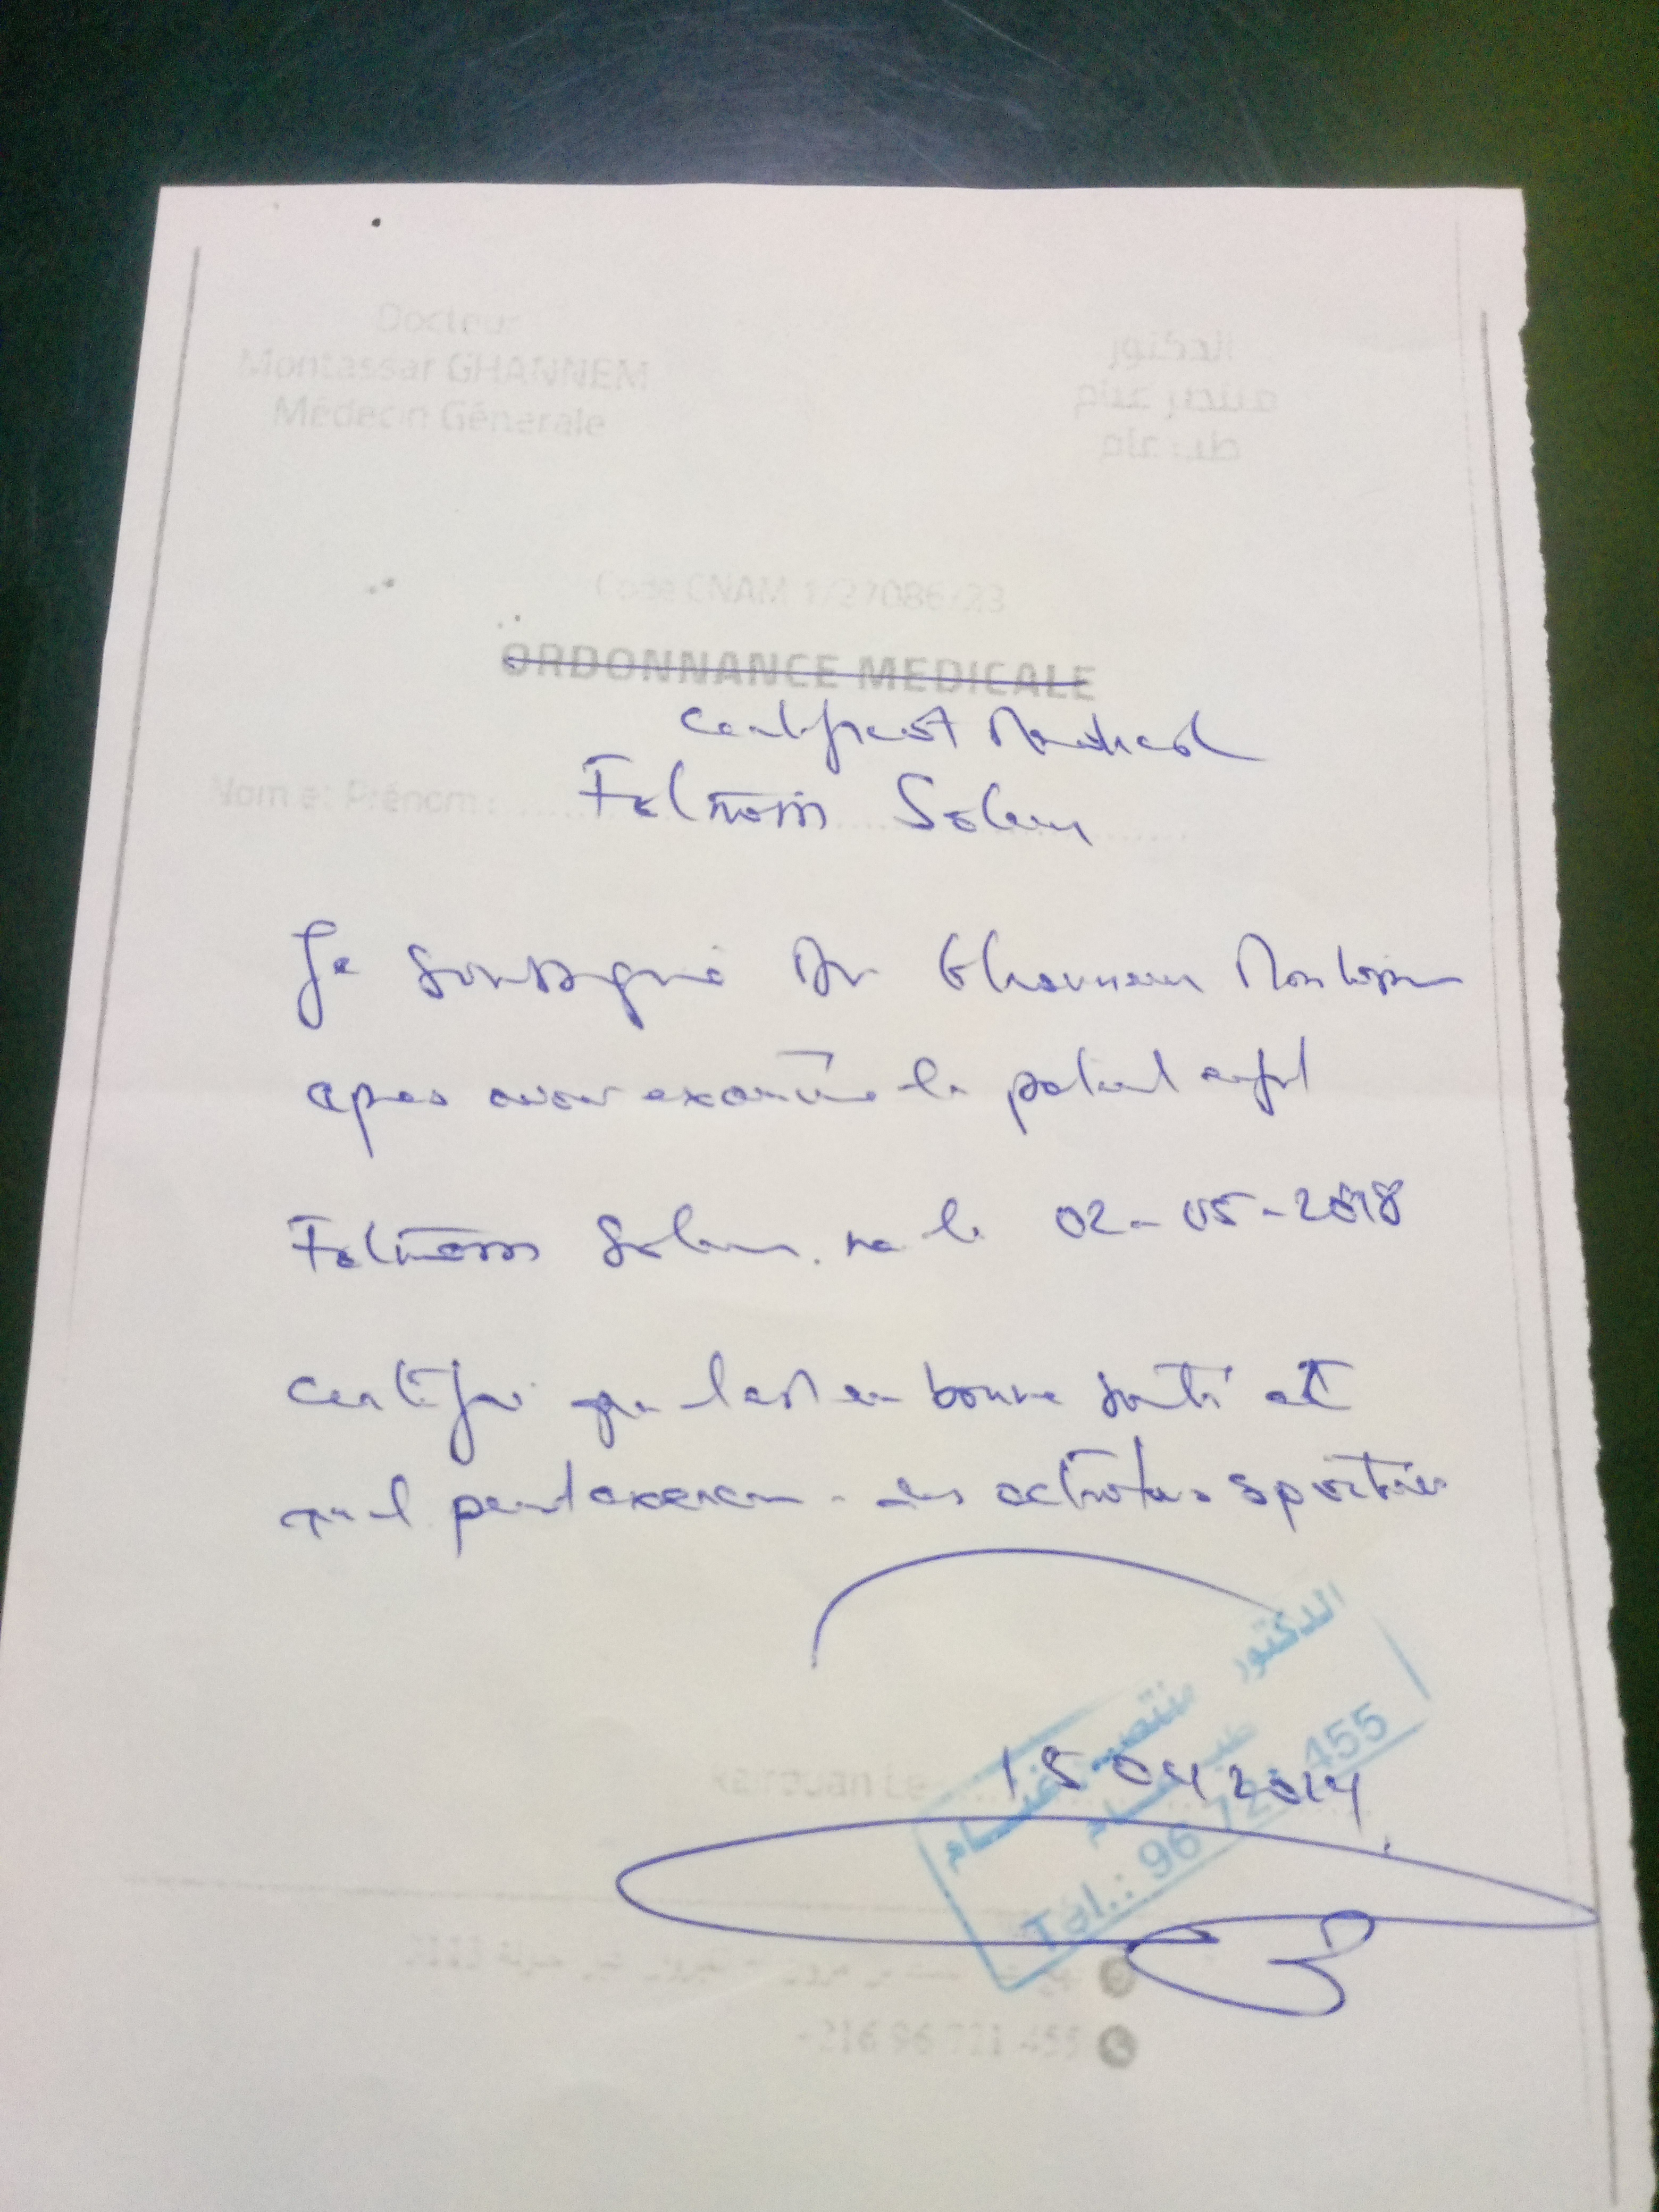 Docteur
Montassar GHANNEM
Médecin Génerale
الدكتور
منتصر غنام
طب عام
Code CNAM 1/27086/23
ORDONNANCE MEDICALE
Certificat Medical
Nom et Prénom :
Je soussigné Dr Ghannem Montassar
apres avoir examiné le patient enfant
né le 02-05-2018
certifie qu'il est en bonne santé et
qu'il peut exercer des activités sportives
الدكتور منتصر غنام
طب عام
Tél.: 96 721 455
Kairouan Le
15 04 2024
3113
+216 96 721 455